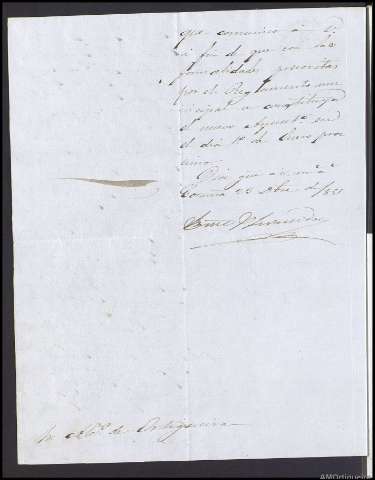 que comunico á V.
á fin de que con las
formalidades prescritas
por el Reglamento mu
nicipal se constituya
el nuevo Ayunt.º en
el dia 1º de Enero pró
ximo.
Dios gue á V. m.s a.s
Coruña 23 Dbre. de
Sr. Alc.e de Ortigueira
AMOrtigueira